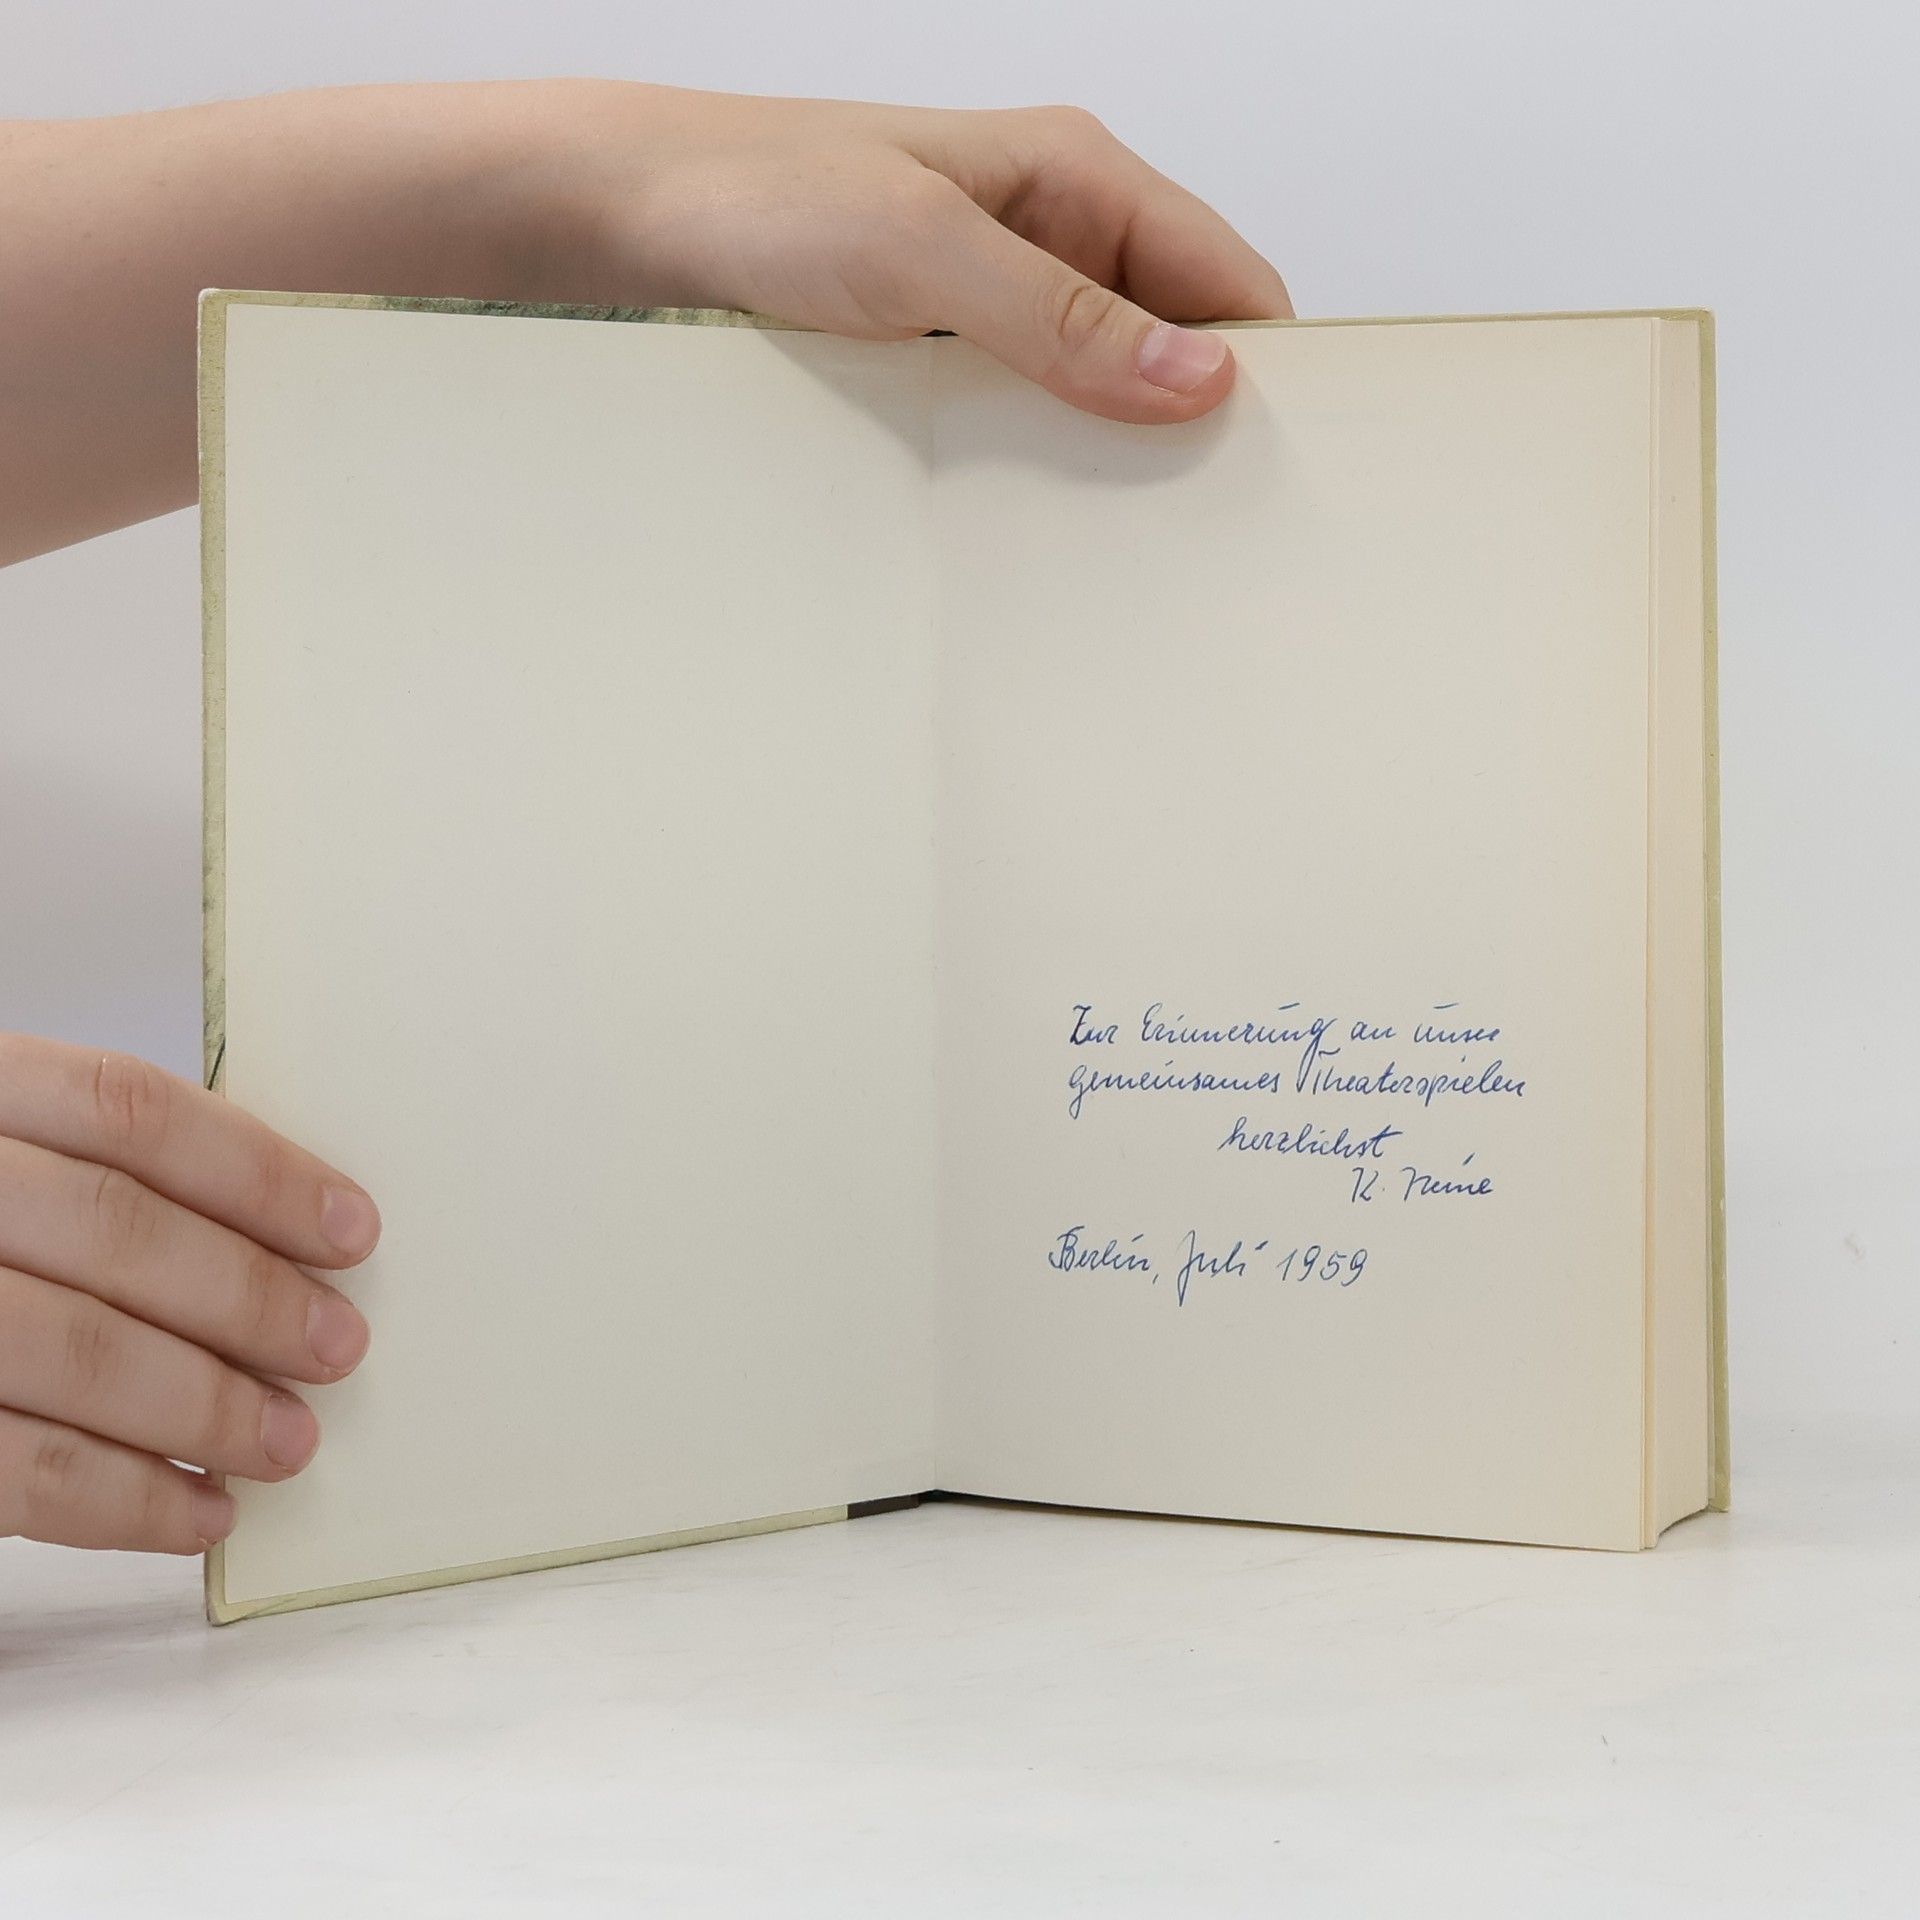 Zur Erinnerung an unser
gemeinsames Theaterspielen
herzlichst
K. Heine
Berlin, Juli 1959